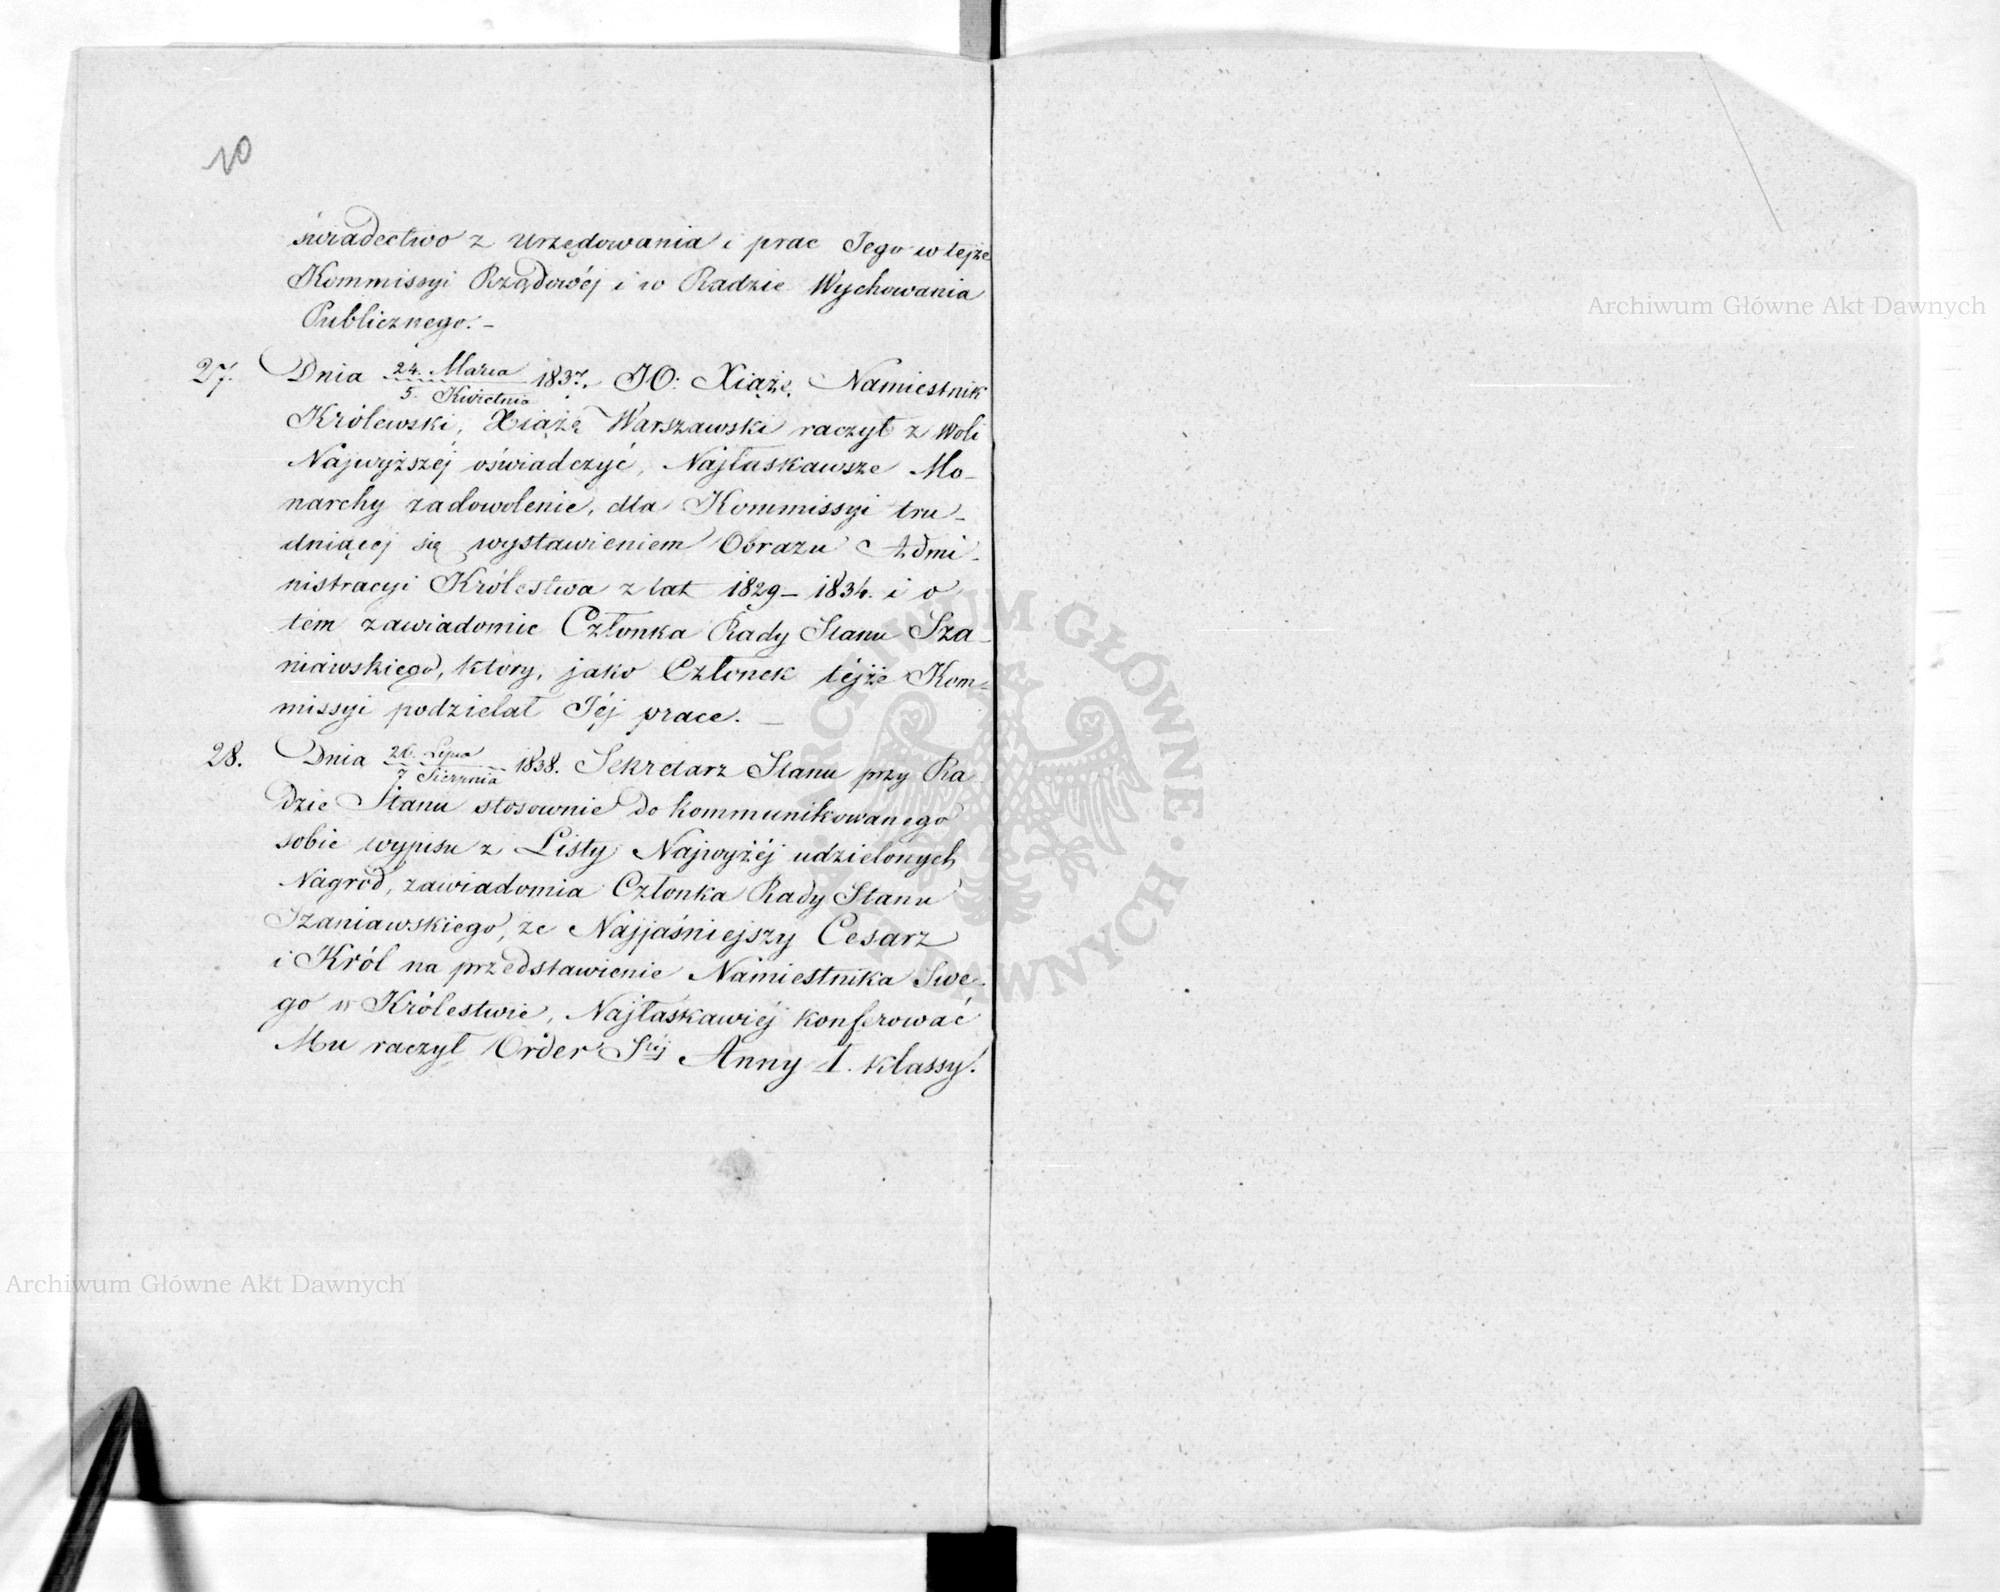 10
świadectwo z Urzędowania i prac Jego w tejże
Kommissyi Rządowéj i w Radzie Wychowania
Publicznego. –
27. Dnia 24. Marca / 5. Kwietnia 1837. JO: Xiążę, Namiestnik
Królewski, Xiążę Warszawski raczył z Woli
Najwyższéj oświadczyć, Najłaskawsze Mo-
narchy zadowolenie, dla Kommissyi tru-
dniącéj się wystawieniem Obrazu Admi-
nistracyi Królestwa z lat 1829 – 1834. i o
tém zawiadomić Członka Rady Stanu Sza-
niawskiego, który, jako Członek téjże Kom-
missyi podzielał Jéj prace. –
28. Dnia 26. Lipca / 7 Sierpnia 1838. Sekretarz Stanu przy Ra
dzie Stanu stosownie do kommunikowanego
sobie wypisu z Listy Najwyżéj udzielonych
Nagród, zawiadomia Członka Rady Stanu
Szaniawskiego, że Najjaśniejszy Cesarz
i Król na przedstawienie Namiestnika Swe-
go w Królestwie, Najłaskawiéj konferować
Mu raczył Order Stéj Anny I. klassy.
Archiwum Główne Akt Dawnych
Archiwum Główne Akt Dawnych
ARCHIWUM GŁÓWNE AKT DAWNYCH